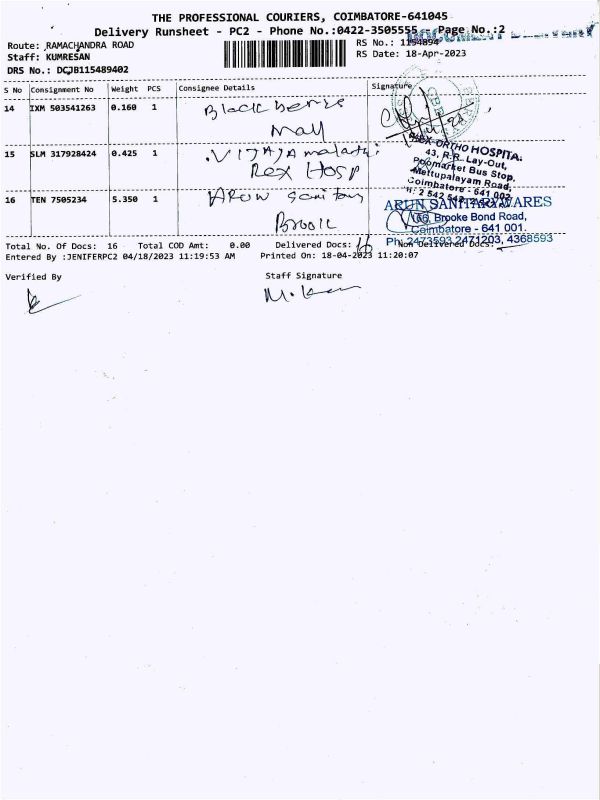 THE PROFESSIONAL COURIERS, COIMBATORE-641045
Delivery Runsheet - PC2 - Phone No.:0422-3505555 Page No.:2
DOCUMENT DELIVERY
Route: RAMACHANDRA ROAD
RS No.: 1154894
Staff: KUMRESAN
RS Date: 18-Apr-2023
DRS No.: DCJB115489402
S No Consignment No Weight PCS Consignee Details Signature
14 IXM 503541263 0.160 1 Black berrys
Mall
15 SLM 317928424 0.425 1 VIJAJA malathi
Rex Hosp
REX ORTHO HOSPITAL
43, R.R. Lay-Out,
Poomarket Bus Stop,
Mettupalayam Road,
Coimbatore - 641 002
16 TEN 7505234 5.350 1 Arun Sanitary
Brook
ARUN SANITARYWARES
Brooke Bond Road,
Coimbatore - 641 001.
Ph: 2473593, 2471203, 4368593
Total No. Of Docs: 16 Total COD Amt: 0.00 Delivered Docs: 16 Non Delivered Docs:
Entered By :JENIFERPC2 04/18/2023 11:19:53 AM Printed On: 18-04-2023 11:20:07
Verified By Staff Signature
M. Kum